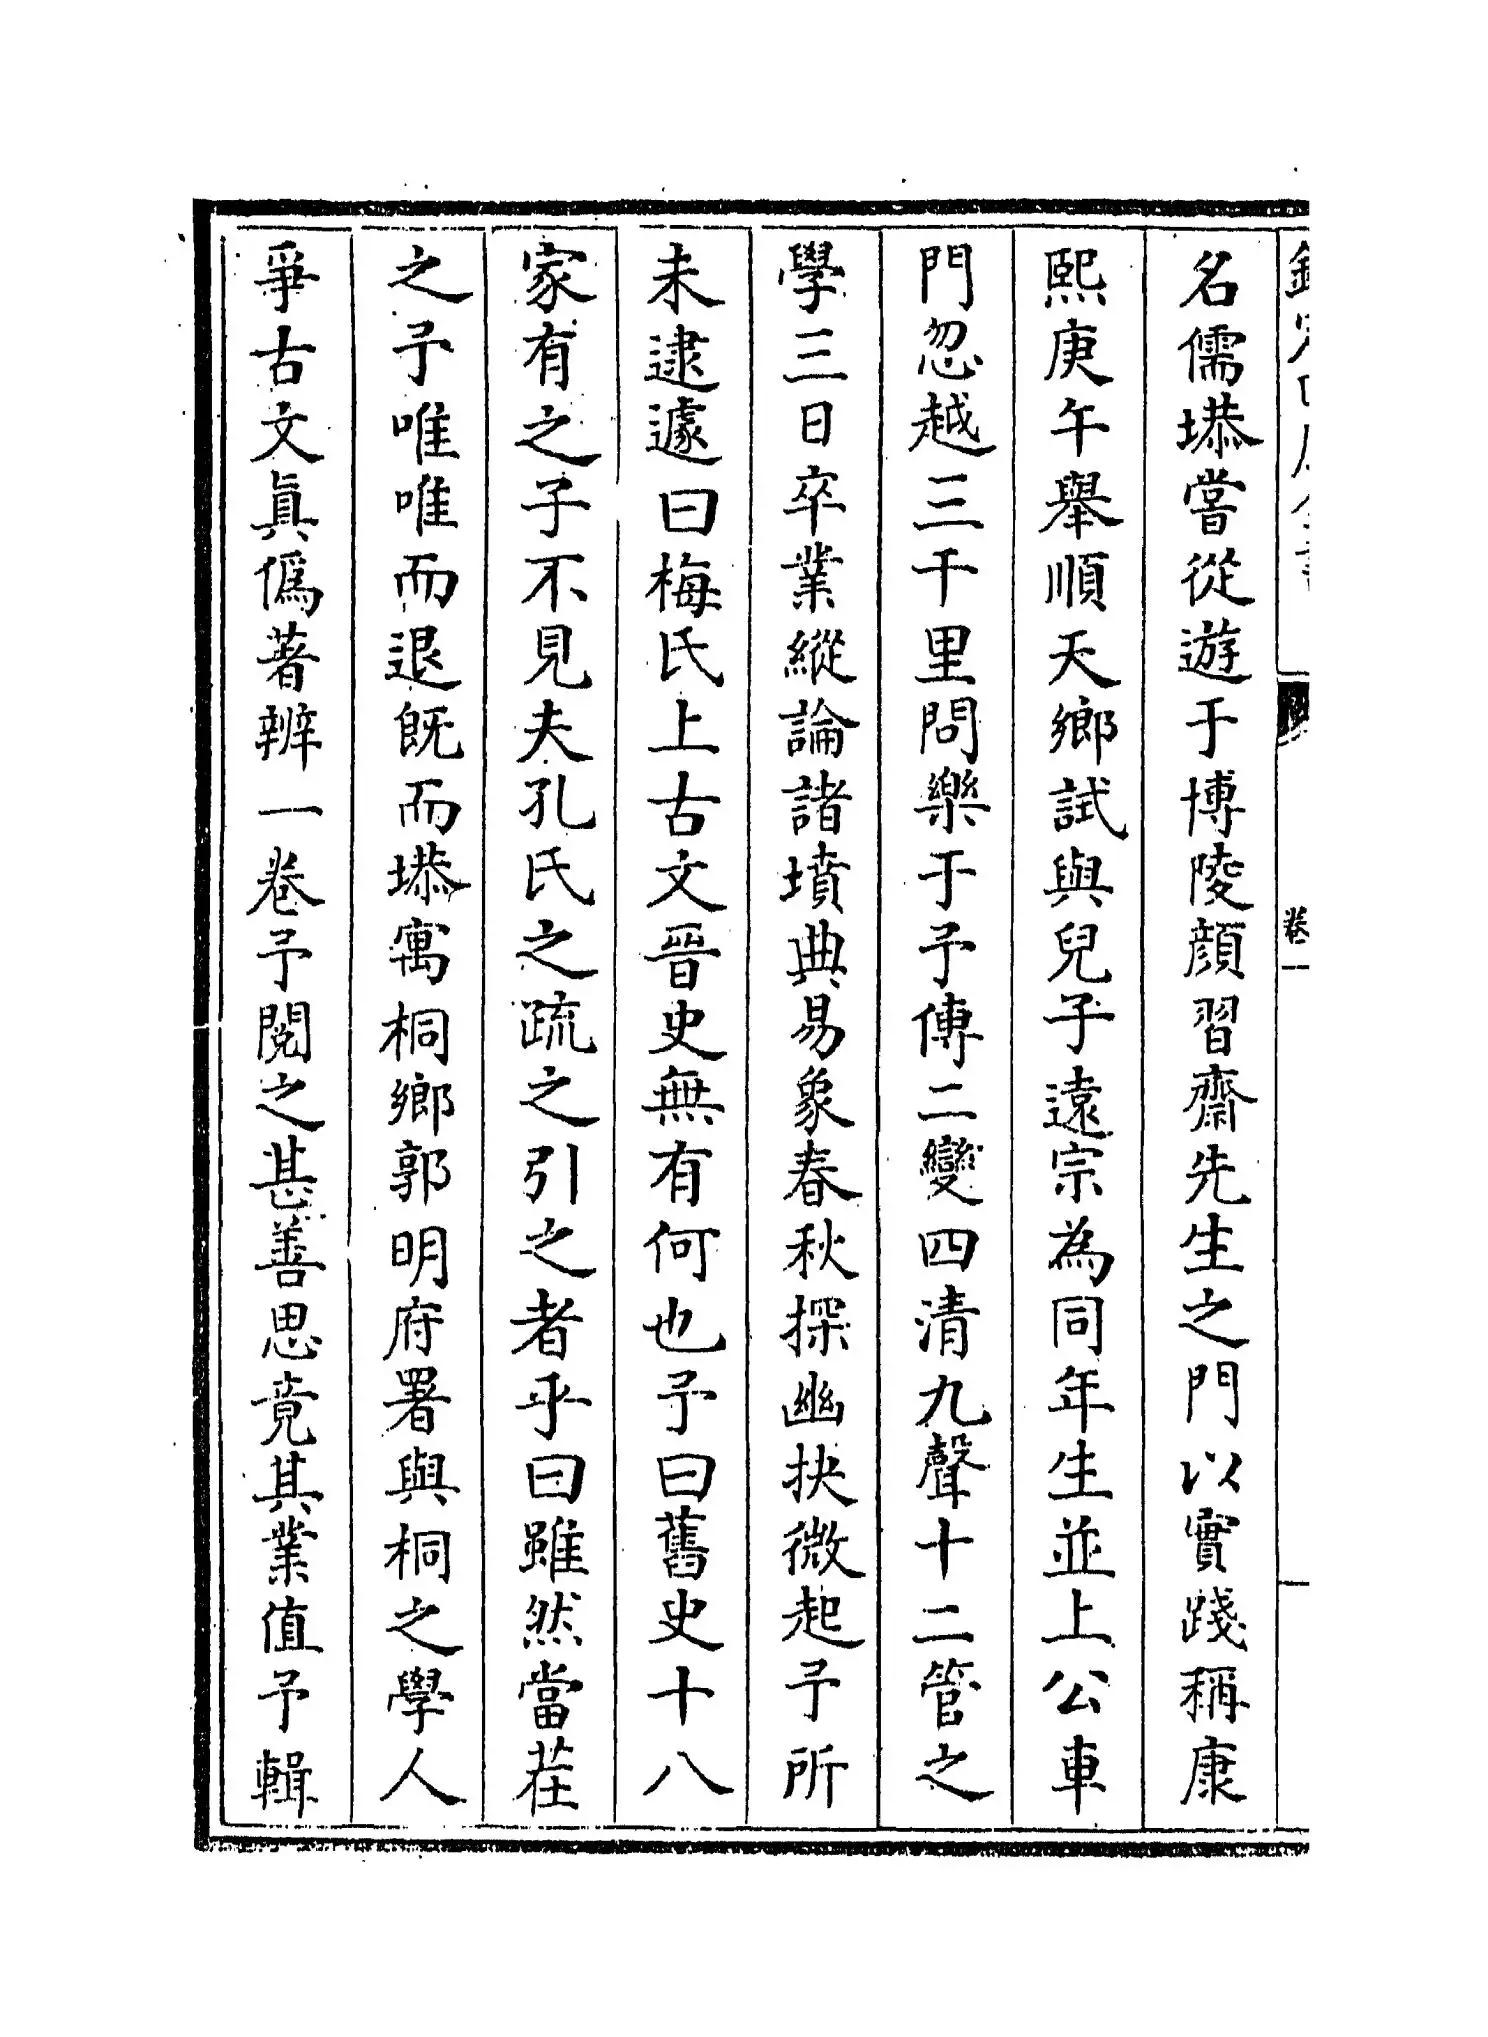 名儒塨嘗從遊于博陵顔習齋先生之門以實踐稱康
熙庚午舉順天鄉試與兒子遠宗為同年生並上公車
門忽越三千里問樂于予傳二變四清九聲十二管之
學三日卒業縱論諸墳典易象春秋探幽抉微起予所
未逮遽曰梅氏上古文晉史無有何也予曰舊史十八
家有之子不見夫孔氏之疏之引之者乎曰雖然當在
之予唯唯而退既而塨寓桐鄉郭明府署與桐之學人
爭古文眞僞著辨一卷予閱之甚善思竟其業值予輯
卷一